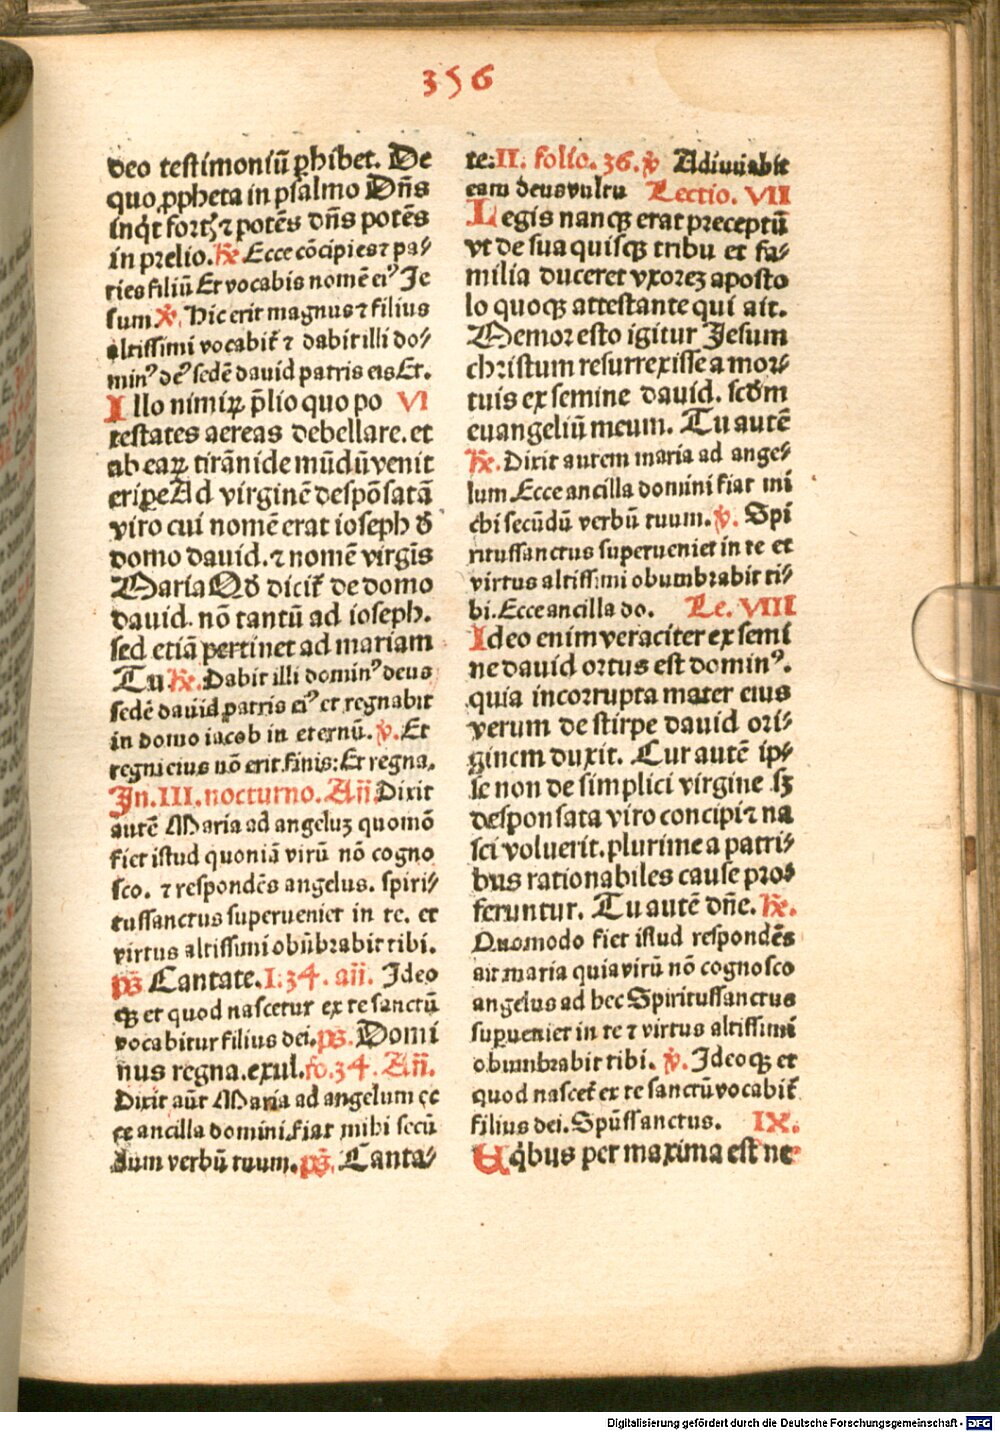 356
deo testimoniū ꝑhibet. De
quo ꝓpheta in psalmo Dn̄s
inqͥt fortꝭ ⁊ potēs dn̄s potēs
in prelio. ℟ Ecce cōcipies ⁊ pa⸗
ries filiū Et vocabis nomē eiꝰ Je
sum ℣. Hic erit magnus ⁊ filius
altissimi vocabit̄ ⁊ dabit illi do⸗
minꝰ deꝰ sedē dauid patris eis Et.
Illo nimiꝝ p̄lio quo po VI
testates aereas debellare. et
ab eaꝝ tirānide mūdū venit
eripe Ad virginē despōsatā
viro cui nomē erat ioseph đ
domo dauid. ⁊ nomē virgīs
Maria Qđ dicit̄ de domo
dauid. nō tantū ad ioseph.
sed etiā pertinet ad mariam
Tu ℟. Dabit illi dominꝰ deus
sedē dauid ꝑatris eiꝰ et regnabit
in domo iacob in eternū. ℣. Et
regni eius nō erit finis: Et regna.
In. III. nocturno. Añ. Dixit
autē Maria ad angeluꝫ quomō
fiet istud quoniā virū nō cogno
sco. ⁊ respondēs angelus. spiri⸗
tussanctus superueniet in te. et
virtus altissimi obūbrabit tibi.
pꝭ Cantate. I. 34. añ. Ideo
qꝫ et quod nascetur ex te sanctū
vocabitur filius dei. pꝭ. Domi
nus regna. exul. fo. 34. Añ.
Dixit aūt Maria ad angelum ec
ce ancilla domini fiat mihi secū
dum verbū tuum. pꝭ. Canta⸗
te: II. folio. 36. ℣ Adiuuabit
eam deus vultu Lectio. VII
Legis nanqꝫ erat preceptū
vt de sua quisqꝫ tribu et fa⸗
milia duceret vxoreꝫ aposto
lo quoqꝫ attestante qui ait.
Memor esto igitur Jesum
christum resurrexisse a mor⸗
tuis ex semine dauid. scđm
euangeliū meum. Tu autē
℟. Dixit autem maria ad ange⸗
lum Ecce ancilla domini fiat mi
chi secūdū verbū tuum. ℣. Spi
ritussanctus superueniet in te et
virtus altissimi obumbrabit ti⸗
bi. Ecce ancilla do. Le. VIII
Ideo enim veraciter ex semi
ne dauid ortus est dominꝰ.
quia incorrupta mater eius
verum de stirpe dauid ori⸗
ginem duxit. Cur autē ip⸗
se non de simplici virgine sꝫ
desponsata viro concipi ⁊ na
sci voluerit. plurime a patri⸗
bus rationabiles cause pro⸗
feruntur. Tu autē dn̄e. ℟.
Quomodo fiet istud respondēs
ait maria quia virū nō cognosco
angelus ad hec Spiritussanctus
suꝑueniet in te ⁊ virtus altissimi
obumbrabit tibi. ℣. Ideoqꝫ et
quod nascet̄ ex te sanctū vocabit̄
filius dei. Spūssanctus. IX.
E qͥbus per maxima est ne⸗
Digitalisierung gefördert durch die Deutsche Forschungsgemeinschaft - DFG